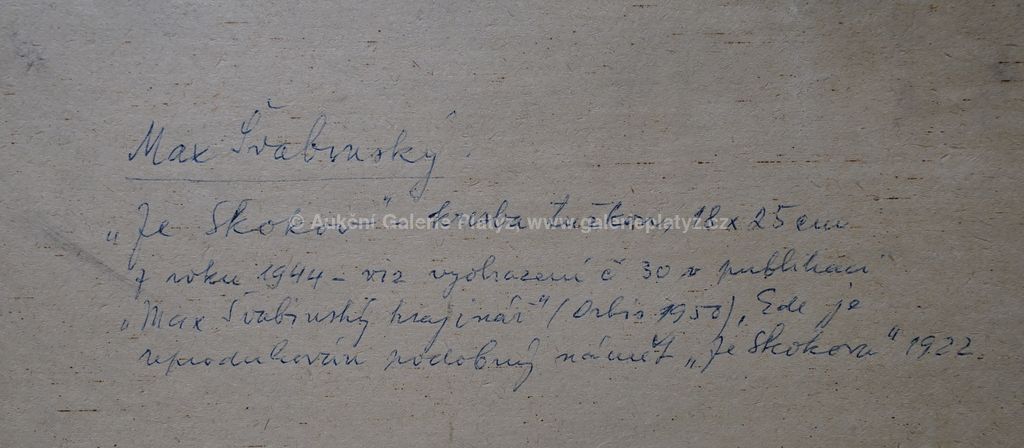 Max Švabinský.
„Ze Skokov" – kresba tužkou, 18 x 25 cm
© Aukční Galerie Platýz www.galerieplatyz.cz
z roku 1944 – viz vyobrazení č 30 v publikaci
„Max Švabinský krajinář" (Orbis 1950), kde je
reprodukován podobný námět „Ze Skokova" 1922.